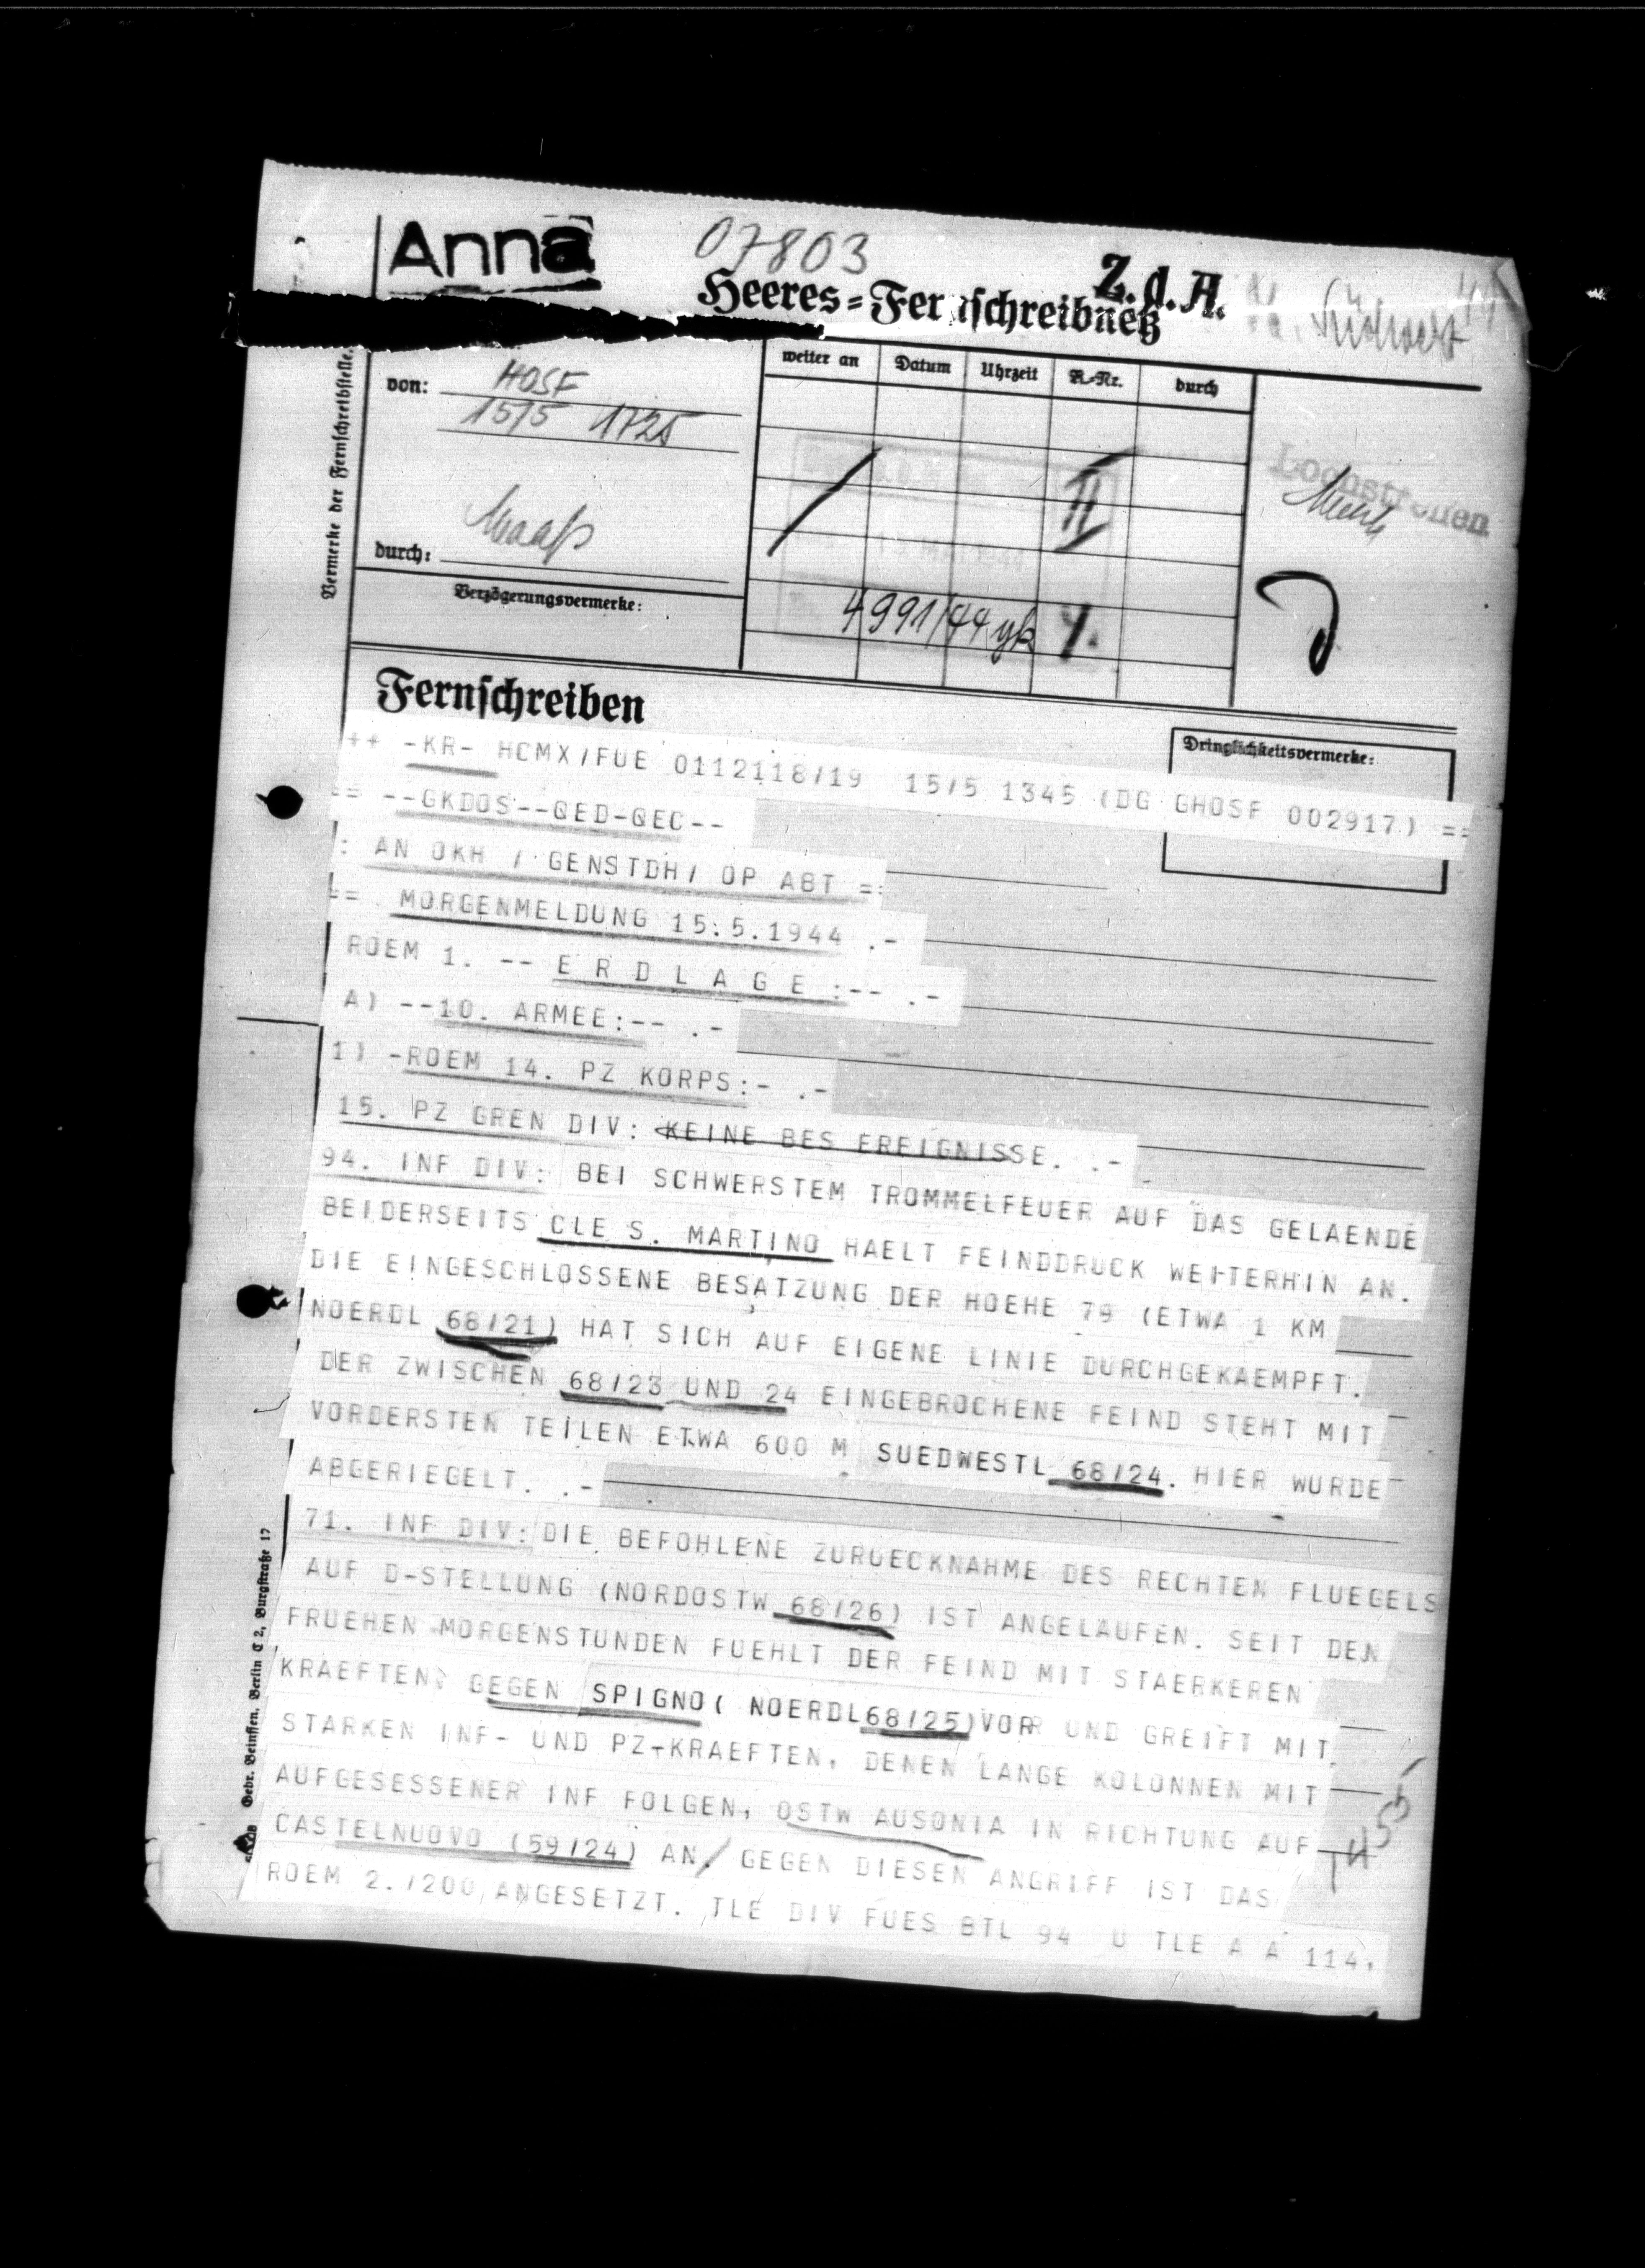 Anna
07803
Z. d. A.
Heeres=Fernschreibnetz
H. Südwest
Vermerke der Fernschreibstelle.
von: HOSF
15/5 1725
durch:
Verzögerungsvermerke:
weiter an Datum Uhrzeit R.-Nr. durch
II
MAI 1944
4991/44 gk
Lochstreifen
Fernschreiben
Dringlichkeitsvermerke:
++ -KR- HCMX/FUE 0112118/19 15/5 1345 (DG GHOSF 002917) ==
== --GKDOS--QED-QEC--
: AN OKH / GENSTDH/ OP ABT ==
== . MORGENMELDUNG 15.5.1944 .-
ROEM 1. -- E R D L A G E :-- .-
A) --10. ARMEE:-- .-
1) -ROEM 14. PZ KORPS:- .-
15. PZ GREN DIV: KEINE BES EREIGNISSE. .-
94. INF DIV: BEI SCHWERSTEM TROMMELFEUER AUF DAS GELAENDE
BEIDERSEITS CLE S. MARTINO HAELT FEINDDRUCK WEITERHIN AN.
DIE EINGESCHLOSSENE BESATZUNG DER HOEHE 79 (ETWA 1 KM
NOERDL 68/21) HAT SICH AUF EIGENE LINIE DURCHGEKAEMPFT.
DER ZWISCHEN 68/23 UND 24 EINGEBROCHENE FEIND STEHT MIT
VORDERSTEN TEILEN ETWA 600 M SUEDWESTL 68/24. HIER WURDE
ABGERIEGELT. .-
71. INF DIV: DIE BEFOHLENE ZURUECKNAHME DES RECHTEN FLUEGELS
AUF D-STELLUNG (NORDOSTW 68/26) IST ANGELAUFEN. SEIT DEN
FRUEHEN MORGENSTUNDEN FUEHLT DER FEIND MIT STAERKEREN
KRAEFTEN GEGEN SPIGNO ( NOERDL 68/25) VOR UND GREIFT MIT
STARKEN INF- UND PZ-KRAEFTEN, DENEN LANGE KOLONNEN MIT
AUFGESESSENER INF FOLGEN, OSTW AUSONIA IN RICHTUNG AUF
CASTELNUOVO (59/24) AN. GEGEN DIESEN ANGRIFF IST DAS
ROEM 2./200 ANGESETZT. TLE DIV FUES BTL 94 U TLE A A 114,
Gebr. Beinssen, Berlin C 2, Burgstraße 17